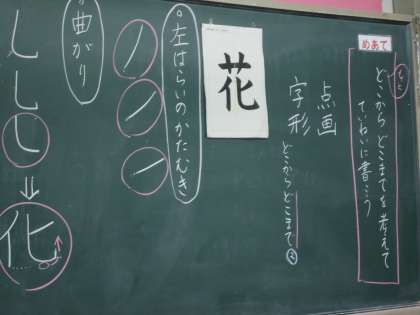 めあて
もっと
どこからどこまでを考えて
ていねいに書こう
点画
字形
どこからどこまで
花
。左はらいのかたむき
。曲がり
化